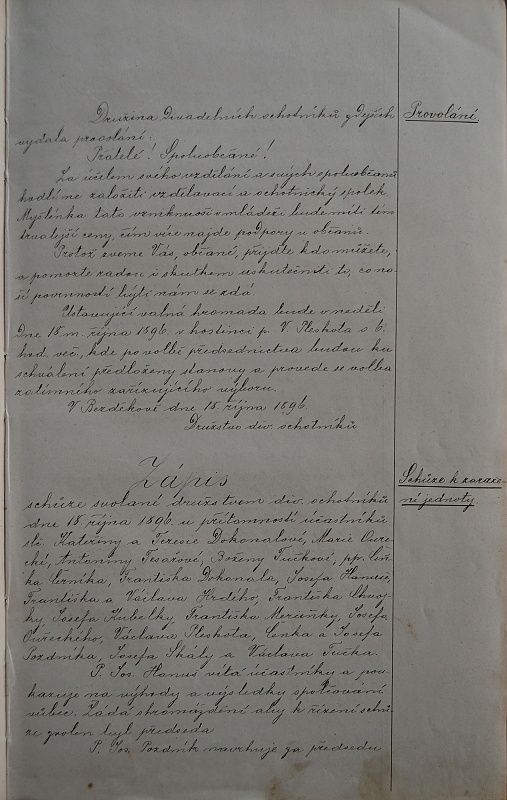 Družina divadelních ochotníků zdejších
vydala provolání:
Přátelé! Spoluobčané!
Za účelem svého vzdělání a svých spoluobčanů
hodláme založiti vzdělávací a ochotnický spolek.
Myšlénka tato vzniknuvší v mládeži bude míti tím
trvalejší ceny, čím více najde podpory u občanů.
Protož zveme Vás, občané, přijďte kdo můžete,
a pomozte radou i skutkem uskutečniti to, co na-
ší povinností býti nám se zdá.
Ustavující valná hromada bude v neděli
dne 18. m. října 1896. v hostinci p. V. Pleskota o 6.
hod. več., kde po volbě předsednictva budou ku
schválení předloženy stanovy a provede se volba
zatímního zařizujícího výboru.
V Bezděkově dne 15. října 1896.
Družstvo div. ochotníků
Provolání.
Zápis
schůze svolané družstvem div. ochotníků
dne 18. října 1896. u přítomnosti účastníků
slč. Kateřiny a Terezie Dokonalové, Marie
Antoniny Tesařové, Boženy Tučkové, pp. Čeň-
ka Černíka, Františka Dokonala, Josefa Hanuše,
Františka a Václava Hrdého, Františka Chvoj-
ky, Josefa Kubelky, Františka Meruňky, Josefa
Václava Pleskota, Čenka a Josefa
Pozdníka, Josefa Skály a Václava Tučka.
P. Jos. Hanuš vítá účastníky a pou-
kazuje na výhody a výsledky spolčování
vůbec. Žádá shromáždění aby k řízení schů-
ze zvolen byl předseda
P. Jos. Pozdník navrhuje za předsedu
Schůze k zaraze-
ní jednoty